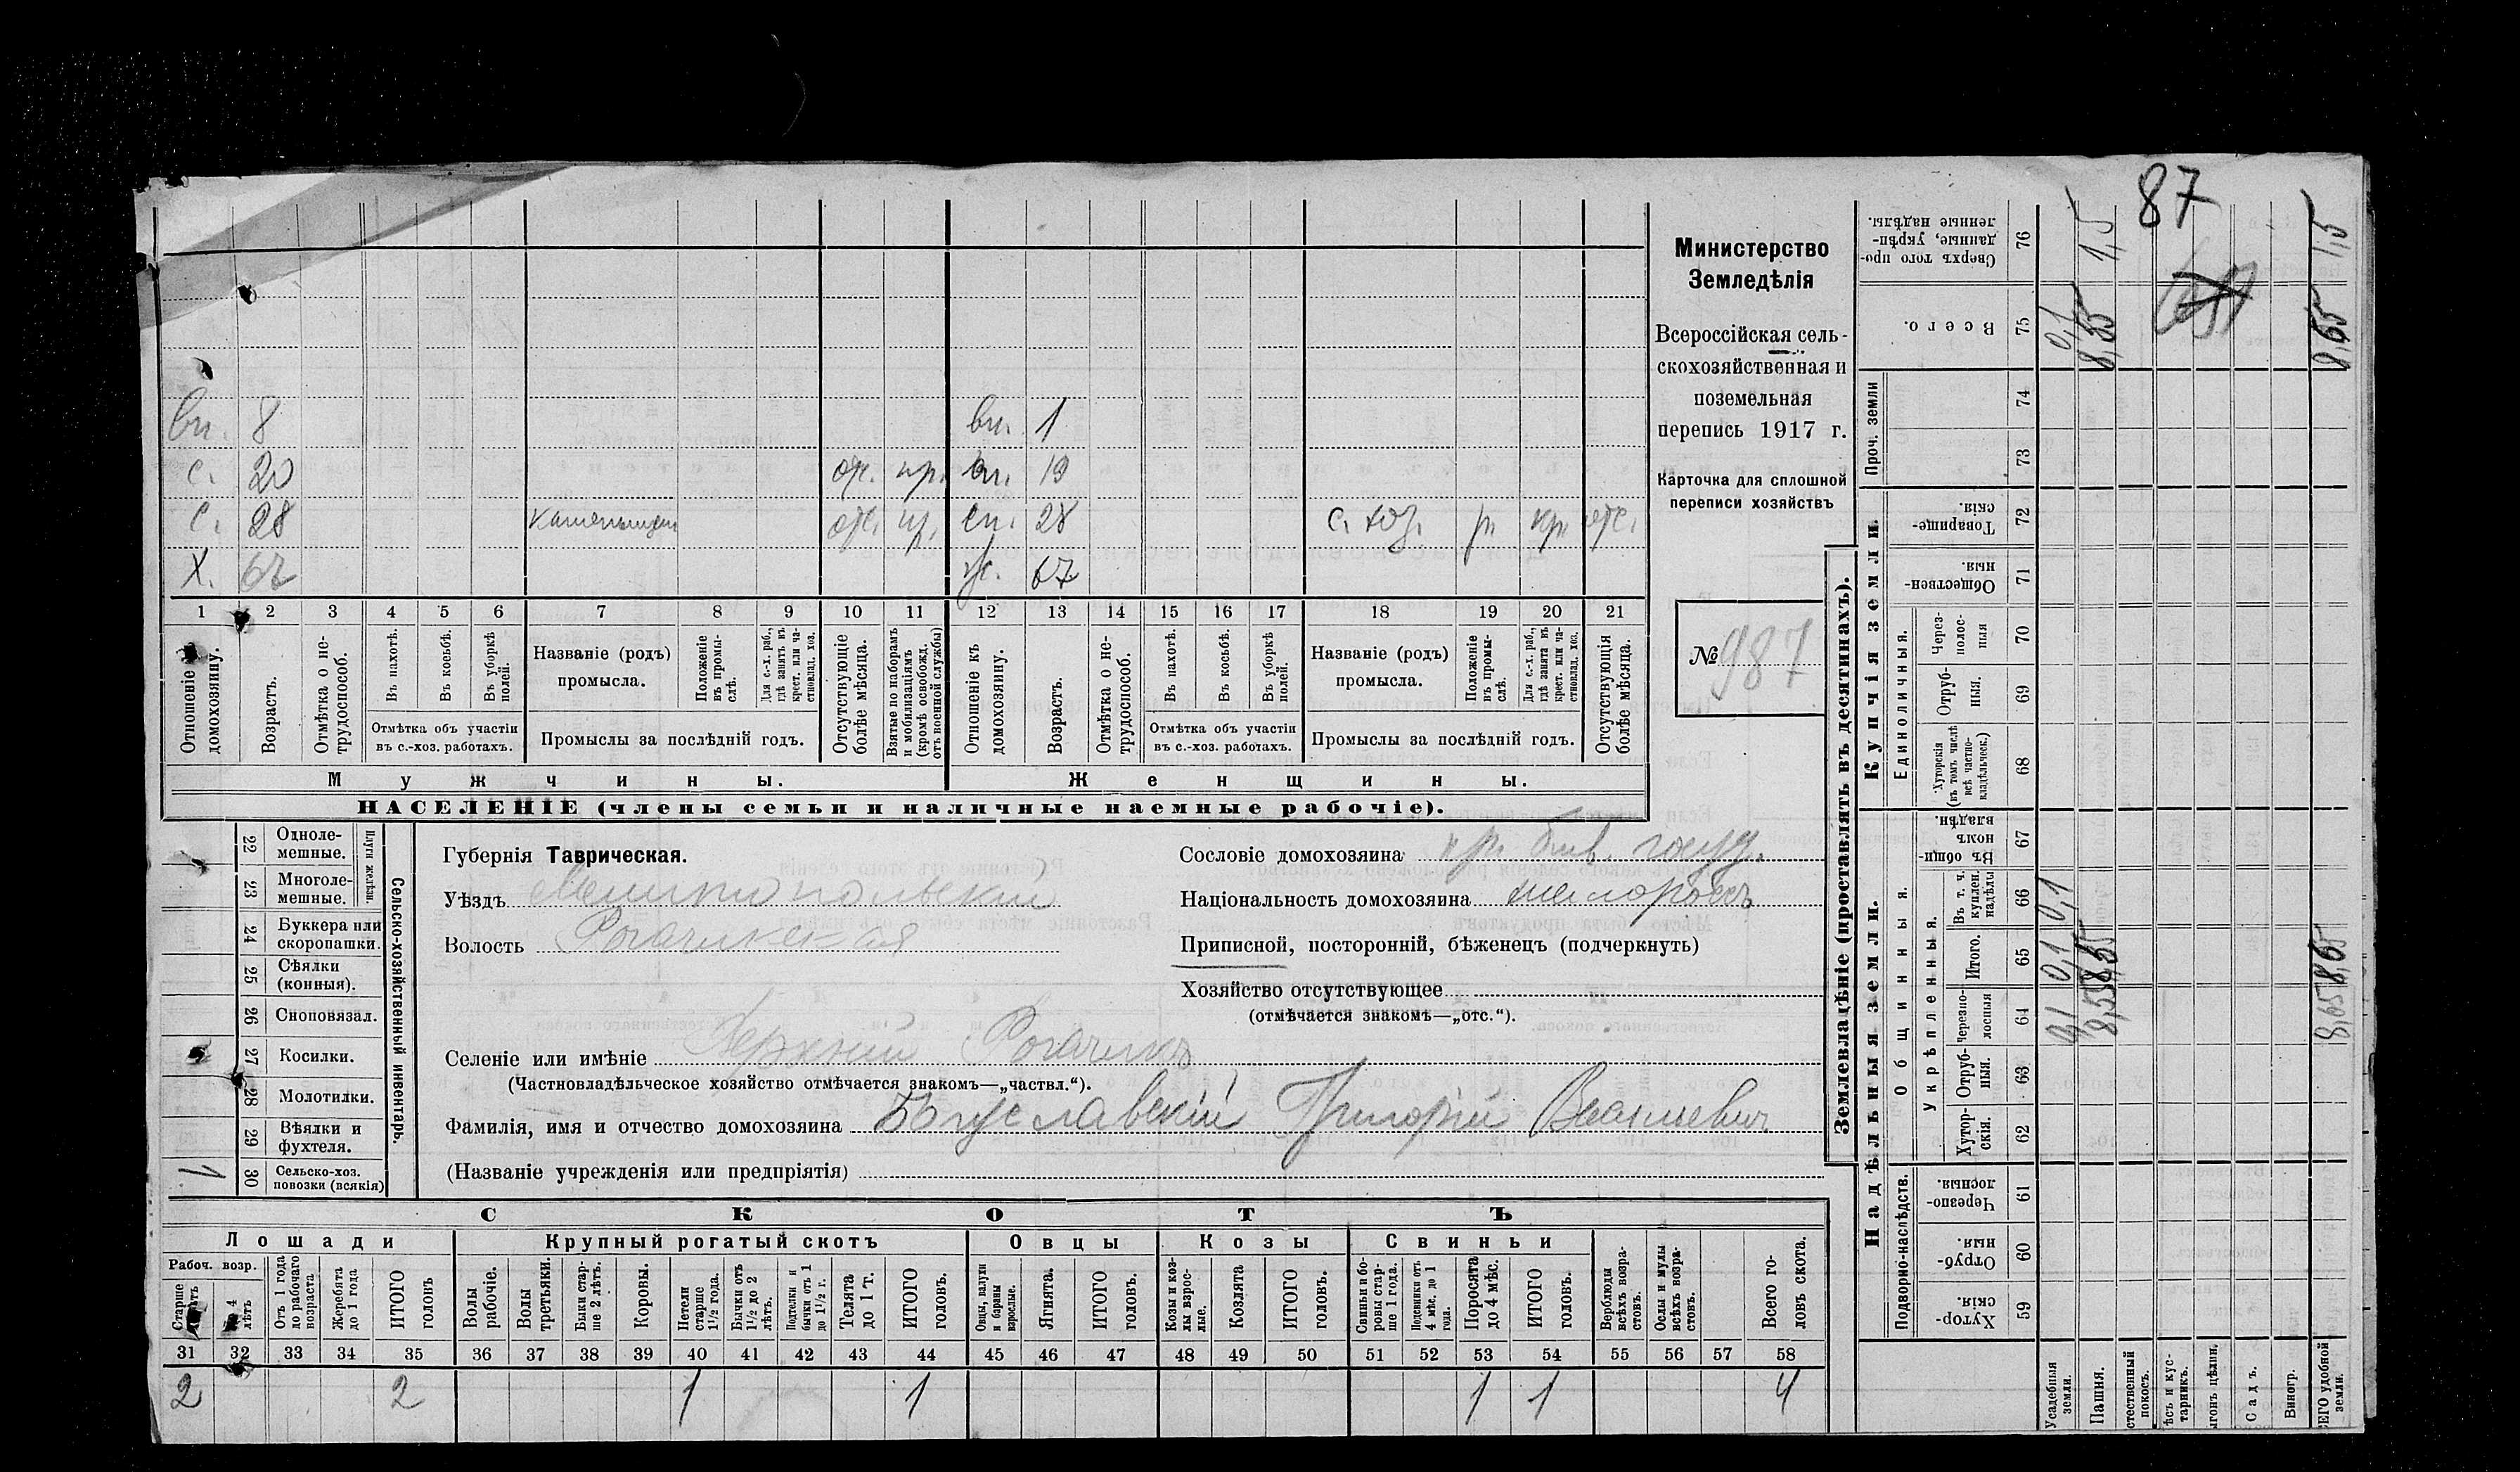 87
Министерство
Земледѣлія
Всероссійская сель-
скохозяйственная и
поземельная
перепись 1917 г.
Карточка для сплошной
переписи хозяйствъ
№ 987
вн. 8 вн. 1
с. 20 отс. пр. вн. 19
с. 28 отс. пр. сн. 28 с. хоз. р. кр. отс.
Х. ж. 67
1 2 3 4 5 6 7 8 9 10 11 12 13 14 15 16 17 18 19 20 21
Отношеніе къ домохозяину.
Возрастъ.
Отмѣтка о не-трудоспособ.
Въ пахотѣ.
Въ косьбѣ.
Въ уборкѣ полей.
Отмѣтка объ участіи
въ с.-хоз. работахъ.
Названіе (родъ)
промысла.
Положеніе въ промы-слѣ.
Для с.-х. раб., гдѣ занятъ въ крест. или ча-стновлад. хоз.
Промыслы за послѣдній годъ.
Отсутствующіе болѣе мѣсяца.
Взятые по наборамъ и мобилизаціямъ (кромѣ освобожд. отъ военной службы)
Отношеніе къ домохозяину.
Возрастъ.
Отмѣтка о не-трудоспособ.
Въ пахотѣ.
Въ косьбѣ.
Въ уборкѣ полей.
Отмѣтка объ участіи
въ с.-хоз. работахъ.
Названіе (родъ)
промысла.
Положеніе въ промы-слѣ.
Для с.-х. раб., гдѣ занята въ крест. или ча-стновлад. хоз.
Промыслы за послѣдній годъ.
Отсутствующія болѣе мѣсяца.
Мужчины. Женщины.
НАСЕЛЕНІЕ (члены семьи и наличные наемные рабочіе).
Сельско-хозяйственный инвентарь.
Плуги желѣзн.
22 Одноле-мешные.
23 Многоле-мешные.
24 Буккера или скоропашки.
25 Сѣялки (конныя).
26 Сноповязал.
27 Косилки.
28 Молотилки.
29 Вѣялки и фухтеля.
30 Сельско-хоз. повозки (всякія) 1
Губернія Таврическая.
Уѣздъ Мелитопольскій
Волость Рогачикская
Сословіе домохозяина кр. быв. госуд.
Національность домохозяина малороссъ
Приписной, посторонній, бѣженецъ (подчеркнуть)
Хозяйство отсутствующее
(отмѣчается знакомъ—„отс.“).
Селеніе или имѣніе Верхній Рогачикъ
(Частновладѣльческое хозяйство отмѣчается знакомъ—„частвл.“).
Фамилія, имя и отчество домохозяина Богуславскій Григорій
(Названіе учрежденія или предпріятія)
СКОТЪ
Лошади Крупный рогатый скотъ Овцы Козы Свиньи
Рабоч. возр.
Старше
4 лѣтъ
Отъ 1 года до рабочаго возраста
Жеребята до 1 года
ИТОГО головъ
Волы рабочіе.
Волы третьяки.
Быки стар-ше 2 лѣтъ.
Коровы.
Нетели старше 1½ года.
Бычки отъ 1½ до 2 лѣтъ.
Подтелки и бычки отъ 1 до 1½ г.
Телята до 1 г.
ИТОГО головъ.
Овцы, валухи и бараны взрослые.
Ягнята.
ИТОГО головъ.
Козы и коз-лы взрос-лые.
Козлята
ИТОГО головъ.
Свиньи и бо-ровы стар-ше 1 года.
Подсвинки отъ 4 мѣс. до 1 года.
Поросята до 4 мѣс.
ИТОГО головъ.
Верблюды всѣхъ возра-стовъ.
Ослы и мулы всѣхъ возра-стовъ.
Всего го-ловъ скота.
31 32 33 34 35 36 37 38 39 40 41 42 43 44 45 46 47 48 49 50 51 52 53 54 55 56 57 58
2 2 1 1 1 1 4
Землевладѣніе (проставлять въ десятинахъ).
Надѣльныя земли. Купчія земли.
Подворно-наслѣдств. Общинныя. Укрѣпленныя. Единоличныя. Проч. земли
59 Хутор-скія.
60 Отруб-ныя.
61 Черезпо-лосныя.
62 Хутор-скія.
63 Отруб-ныя.
64 Черезпо-лосныя
65 Итого.
66 Въ т. ч. куплен. надѣлы
67 Въ общи-номъ владѣн.
68 Хуторскія (въ томъ числѣ всѣ частно-владѣльческ.)
69 Отруб-ныя.
70 Через-полос-ныя
71 Обществен-ныя.
72 Товарище-скія.
73
74
75 Всего.
76 Сверхъ того про-данные, укрѣп-ленные надѣлы.
Усадебныя земли. 0,1 0,1 0,1 0,1
Пашня. 8,55 8,55 8,55 1,5
стественный покосъ.
ѣсъ и кус-тарникъ.
ыгонъ цѣлин.
Садъ.
Виногр.
ЕГО удобной земли. 8,65 8,65 8,65 1,5